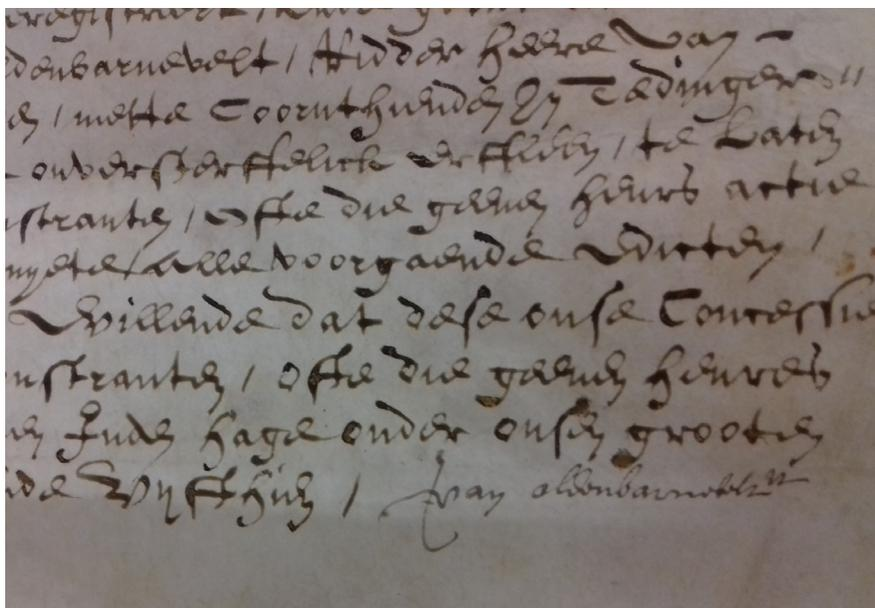 geregistreert,
denbarnevelt, Ridder heere van
en, mette Coornthienden In Tedinger
onversterffelick erffleen, te laten
stranten, Offte die geenen heurs actie
nyete, alle voorgaende Edicten,
Willende dat dese onse Concessie
nstranten, offte die geenen heures
en Inden hage onder onsen grooten
nde Vyfthien, van oldenbarnevelt